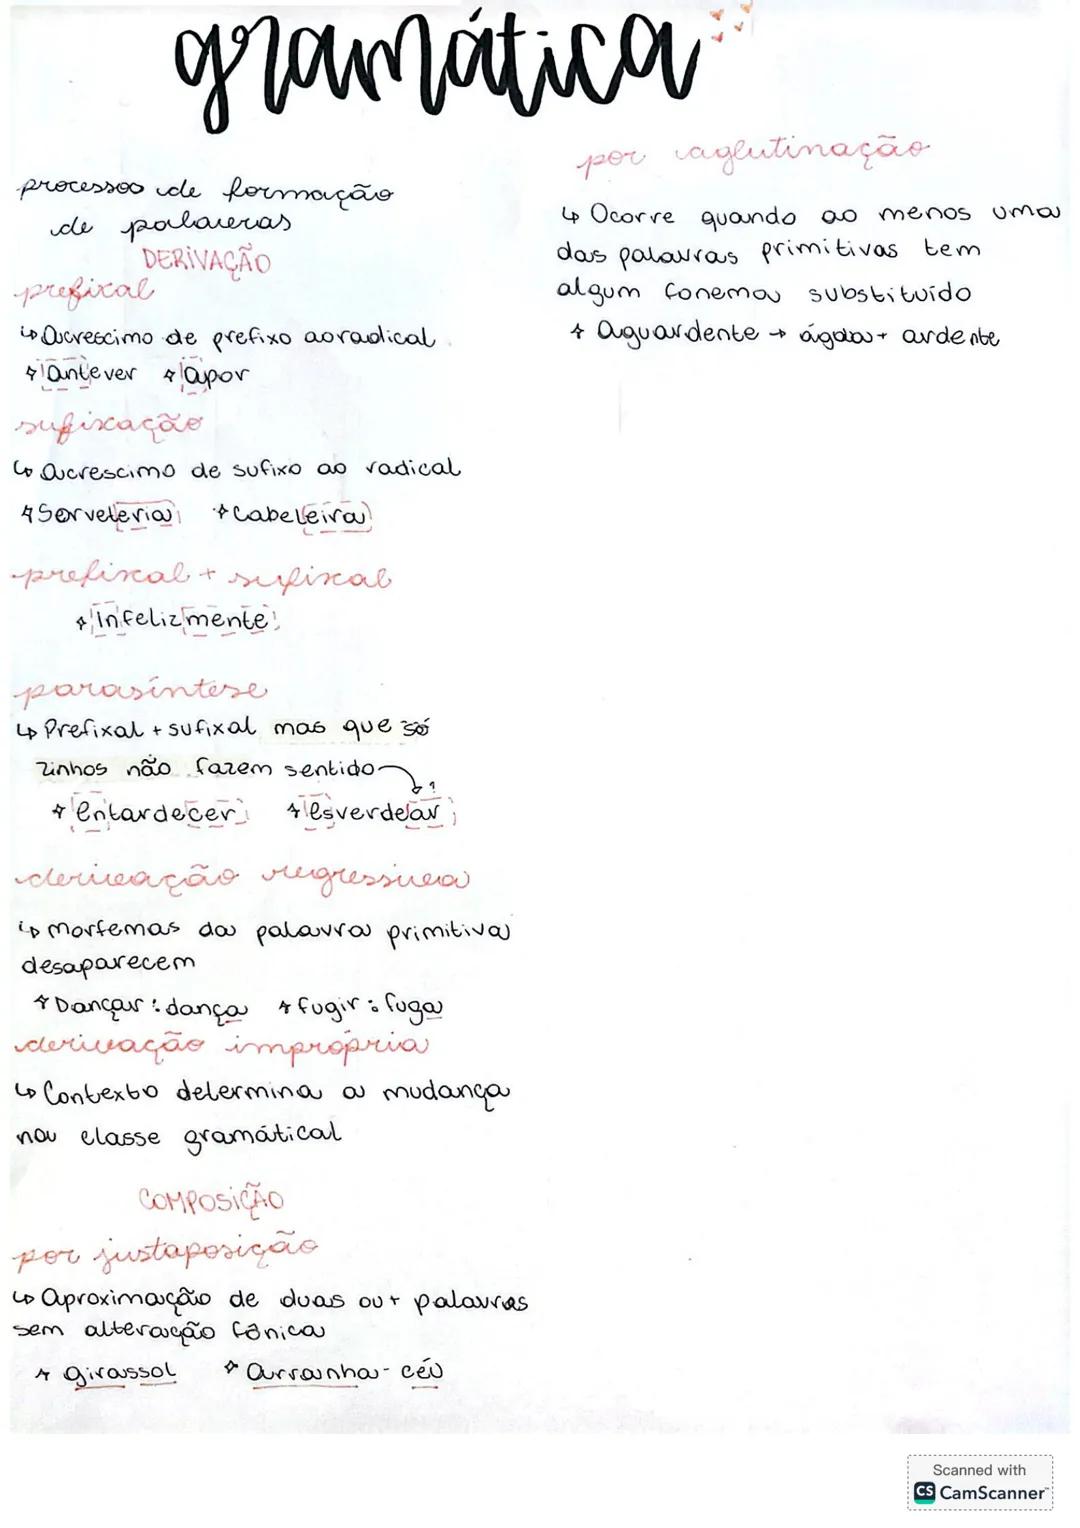 gramática
processos de formação
de palavras
DERIVAÇÃO
prefixal
↳ Acrescimo de prefixo ao radical
Antever apor
sufixação
↳ Acrescimo de sufixo ao radical
Sorveteria Cabeleira
prefixal + sufixal
Infelizmente
parasíntese
↳ Prefixal + sufixal mas que só
zinhos não fazem sentido
?
entardecer esverdear
derivação regressiva
↳ morfemas da palavra primitiva
desaparecem
Dançar : dança fugir : fuga
derivação imprópria
↳ Contexto determina a mudança
na classe gramátical
COMPOSIÇÃO
por justaposição
↳ Aproximação de duas ou + palavras
sem alteração fônica
girassol arranha-céu
por aglutinação
↳ Ocorre quando ao menos uma
das palavras primitivas tem
algum fonema substituído
Aguardente → + ardente
Scanned with
CS CamScanner